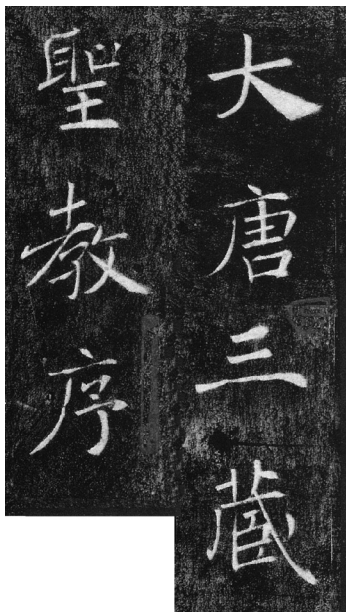 大唐三藏
聖教序